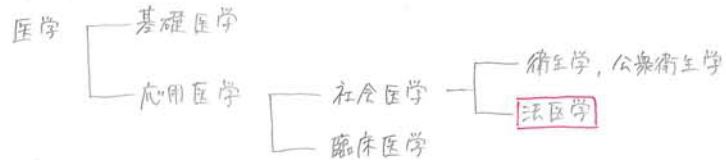 医学
基礎医学
応用医学
社会医学
臨床医学
衛生学，公衆衛生学
法医学